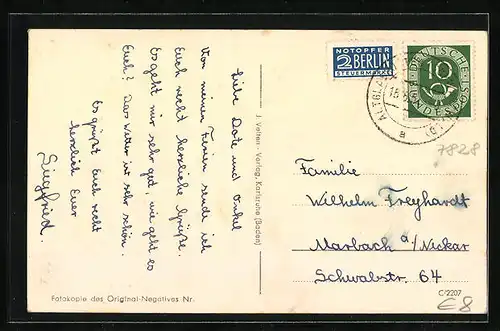 Liebe Dote und Onkel
Von meinen Ferien sende ich
Euch recht herzliche Grüsse.
Es geht mir sehr gut, wie geht es
Euch? Das Wetter ist sehr schön.
Es grüsst Euch recht
herzlich Euer
Siegfried.
Fotokopie des Original-Negatives Nr.
J. Velten - Verlag, Karlsruhe (Baden)
NOTOPFER
2 BERLIN
STEUERMARKE
DEUTSCHE
10
BUNDESPOST
a
7828
Familie
Wilhelm Freyhardt
Marbach a/Neckar
Schwabstr. 64
C/2207
€8